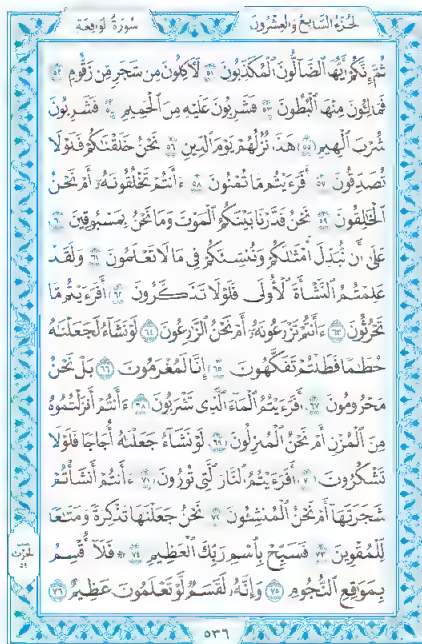 سُورَةُ الوَاقِعَة
الجُزءُ السَّابِعُ وَالعِشرُونَ
ثُمَّ إِنَّكُمْ أَيُّهَا ٱلضَّآلُّونَ ٱلْمُكَذِّبُونَ ٥١ لَءَاكِلُونَ مِن شَجَرٍ مِّن زَقُّومٍ ٥٢
فَمَالِـُٔونَ مِنْهَا ٱلْبُطُونَ ٥٣ فَشَٰرِبُونَ عَلَيْهِ مِنَ ٱلْحَمِيمِ ٥٤ فَشَٰرِبُونَ
شُرْبَ ٱلْهِيمِ ٥٥ هَٰذَا نُزُلُهُمْ يَوْمَ ٱلدِّينِ ٥٦ نَحْنُ خَلَقْنَٰكُمْ فَلَوْلَا
تُصَدِّقُونَ ٥٧ أَفَرَءَيْتُم مَّا تُمْنُونَ ٥٨ ءَأَنتُمْ تَخْلُقُونَهُۥٓ أَمْ نَحْنُ
ٱلْخَٰلِقُونَ ٥٩ نَحْنُ قَدَّرْنَا بَيْنَكُمُ ٱلْمَوْتَ وَمَا نَحْنُ بِمَسْبُوقِينَ ٦٠
عَلَىٰٓ أَن نُّبَدِّلَ أَمْثَٰلَكُمْ وَنُنشِئَكُمْ فِى مَا لَا تَعْلَمُونَ ٦١ وَلَقَدْ
عَلِمْتُمُ ٱلنَّشْأَةَ ٱلْأُولَىٰ فَلَوْلَا تَذَكَّرُونَ ٦٢ أَفَرَءَيْتُم مَّا
تَحْرُثُونَ ٦٣ ءَأَنتُمْ تَزْرَعُونَهُۥٓ أَمْ نَحْنُ ٱلزَّٰرِعُونَ ٦٤ لَوْ نَشَآءُ لَجَعَلْنَٰهُ
حُطَٰمًا فَظَلْتُمْ تَفَكَّهُونَ ٦٥ إِنَّا لَمُغْرَمُونَ ٦٦ بَلْ نَحْنُ
مَحْرُومُونَ ٦٧ أَفَرَءَيْتُمُ ٱلْمَآءَ ٱلَّذِى تَشْرَبُونَ ٦٨ ءَأَنتُمْ أَنزَلْتُمُوهُ
مِنَ ٱلْمُزْنِ أَمْ نَحْنُ ٱلْمُنزِلُونَ ٦٩ لَوْ نَشَآءُ جَعَلْنَٰهُ أُجَاجًا فَلَوْلَا
تَشْكُرُونَ ٧٠ أَفَرَءَيْتُمُ ٱلنَّارَ ٱلَّتِى تُورُونَ ٧١ ءَأَنتُمْ أَنشَأْتُمْ
شَجَرَتَهَآ أَمْ نَحْنُ ٱلْمُنشِـُٔونَ ٧٢ نَحْنُ جَعَلْنَٰهَا تَذْكِرَةً وَمَتَٰعًا
لِّلْمُقْوِينَ ٧٣ فَسَبِّحْ بِٱسْمِ رَبِّكَ ٱلْعَظِيمِ ٧٤ ۞ فَلَآ أُقْسِمُ
بِمَوَٰقِعِ ٱلنُّجُومِ ٧٥ وَإِنَّهُۥ لَقَسَمٌ لَّوْ تَعْلَمُونَ عَظِيمٌ ٧٦
٥٣٦